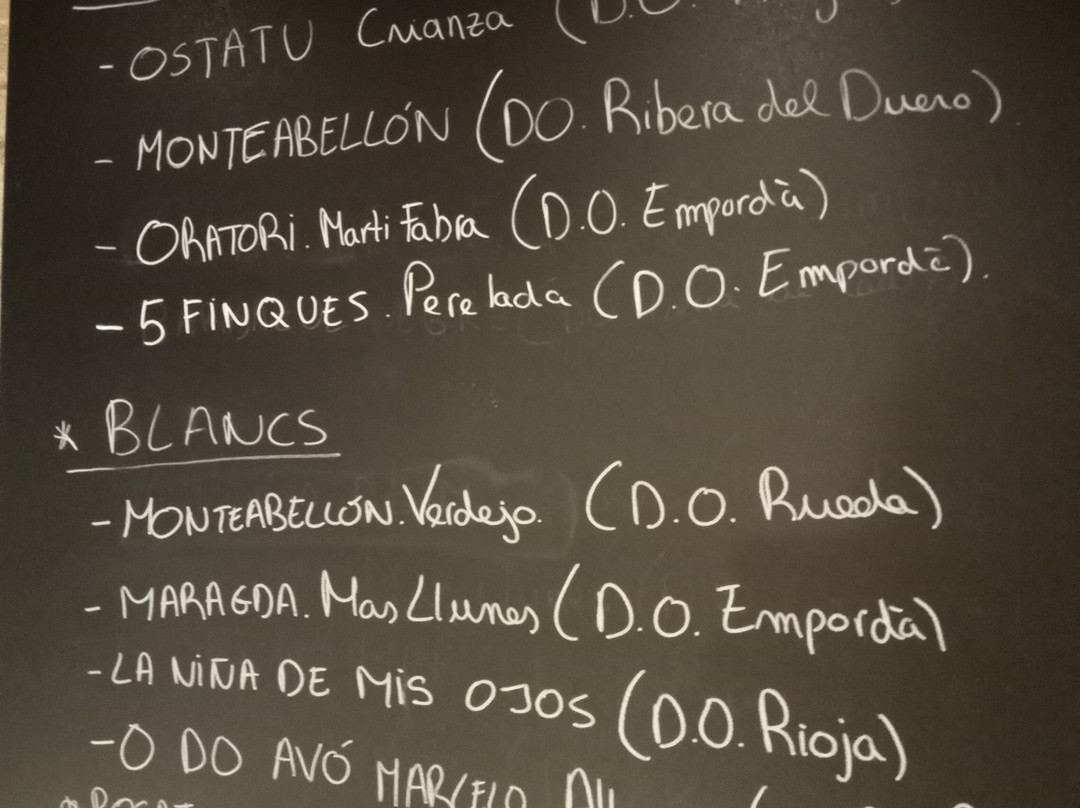 - OSTATU Crianza (D.O.
- MONTEABELLÓN (DO. Ribera del Duero).
- ORATORi. Marti Fabra (D.O. Empordà)
- 5 FiNQUES. Perelada (D.O. Empordà).
* BLANCS
- MONTEABELLÓN. Verdejo. (D.O. Rueda)
- MARAGDA. Mas Llunes (D.O. Empordà)
- LA NiÑA DE MiS OJOS (D.O. Rioja)
- O DO AVÓ MARCELO